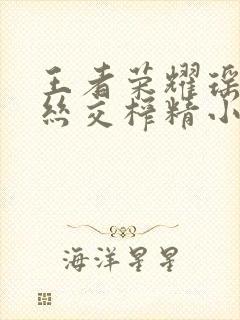 王者荣耀瑶
丝交榨精小
海洋星星